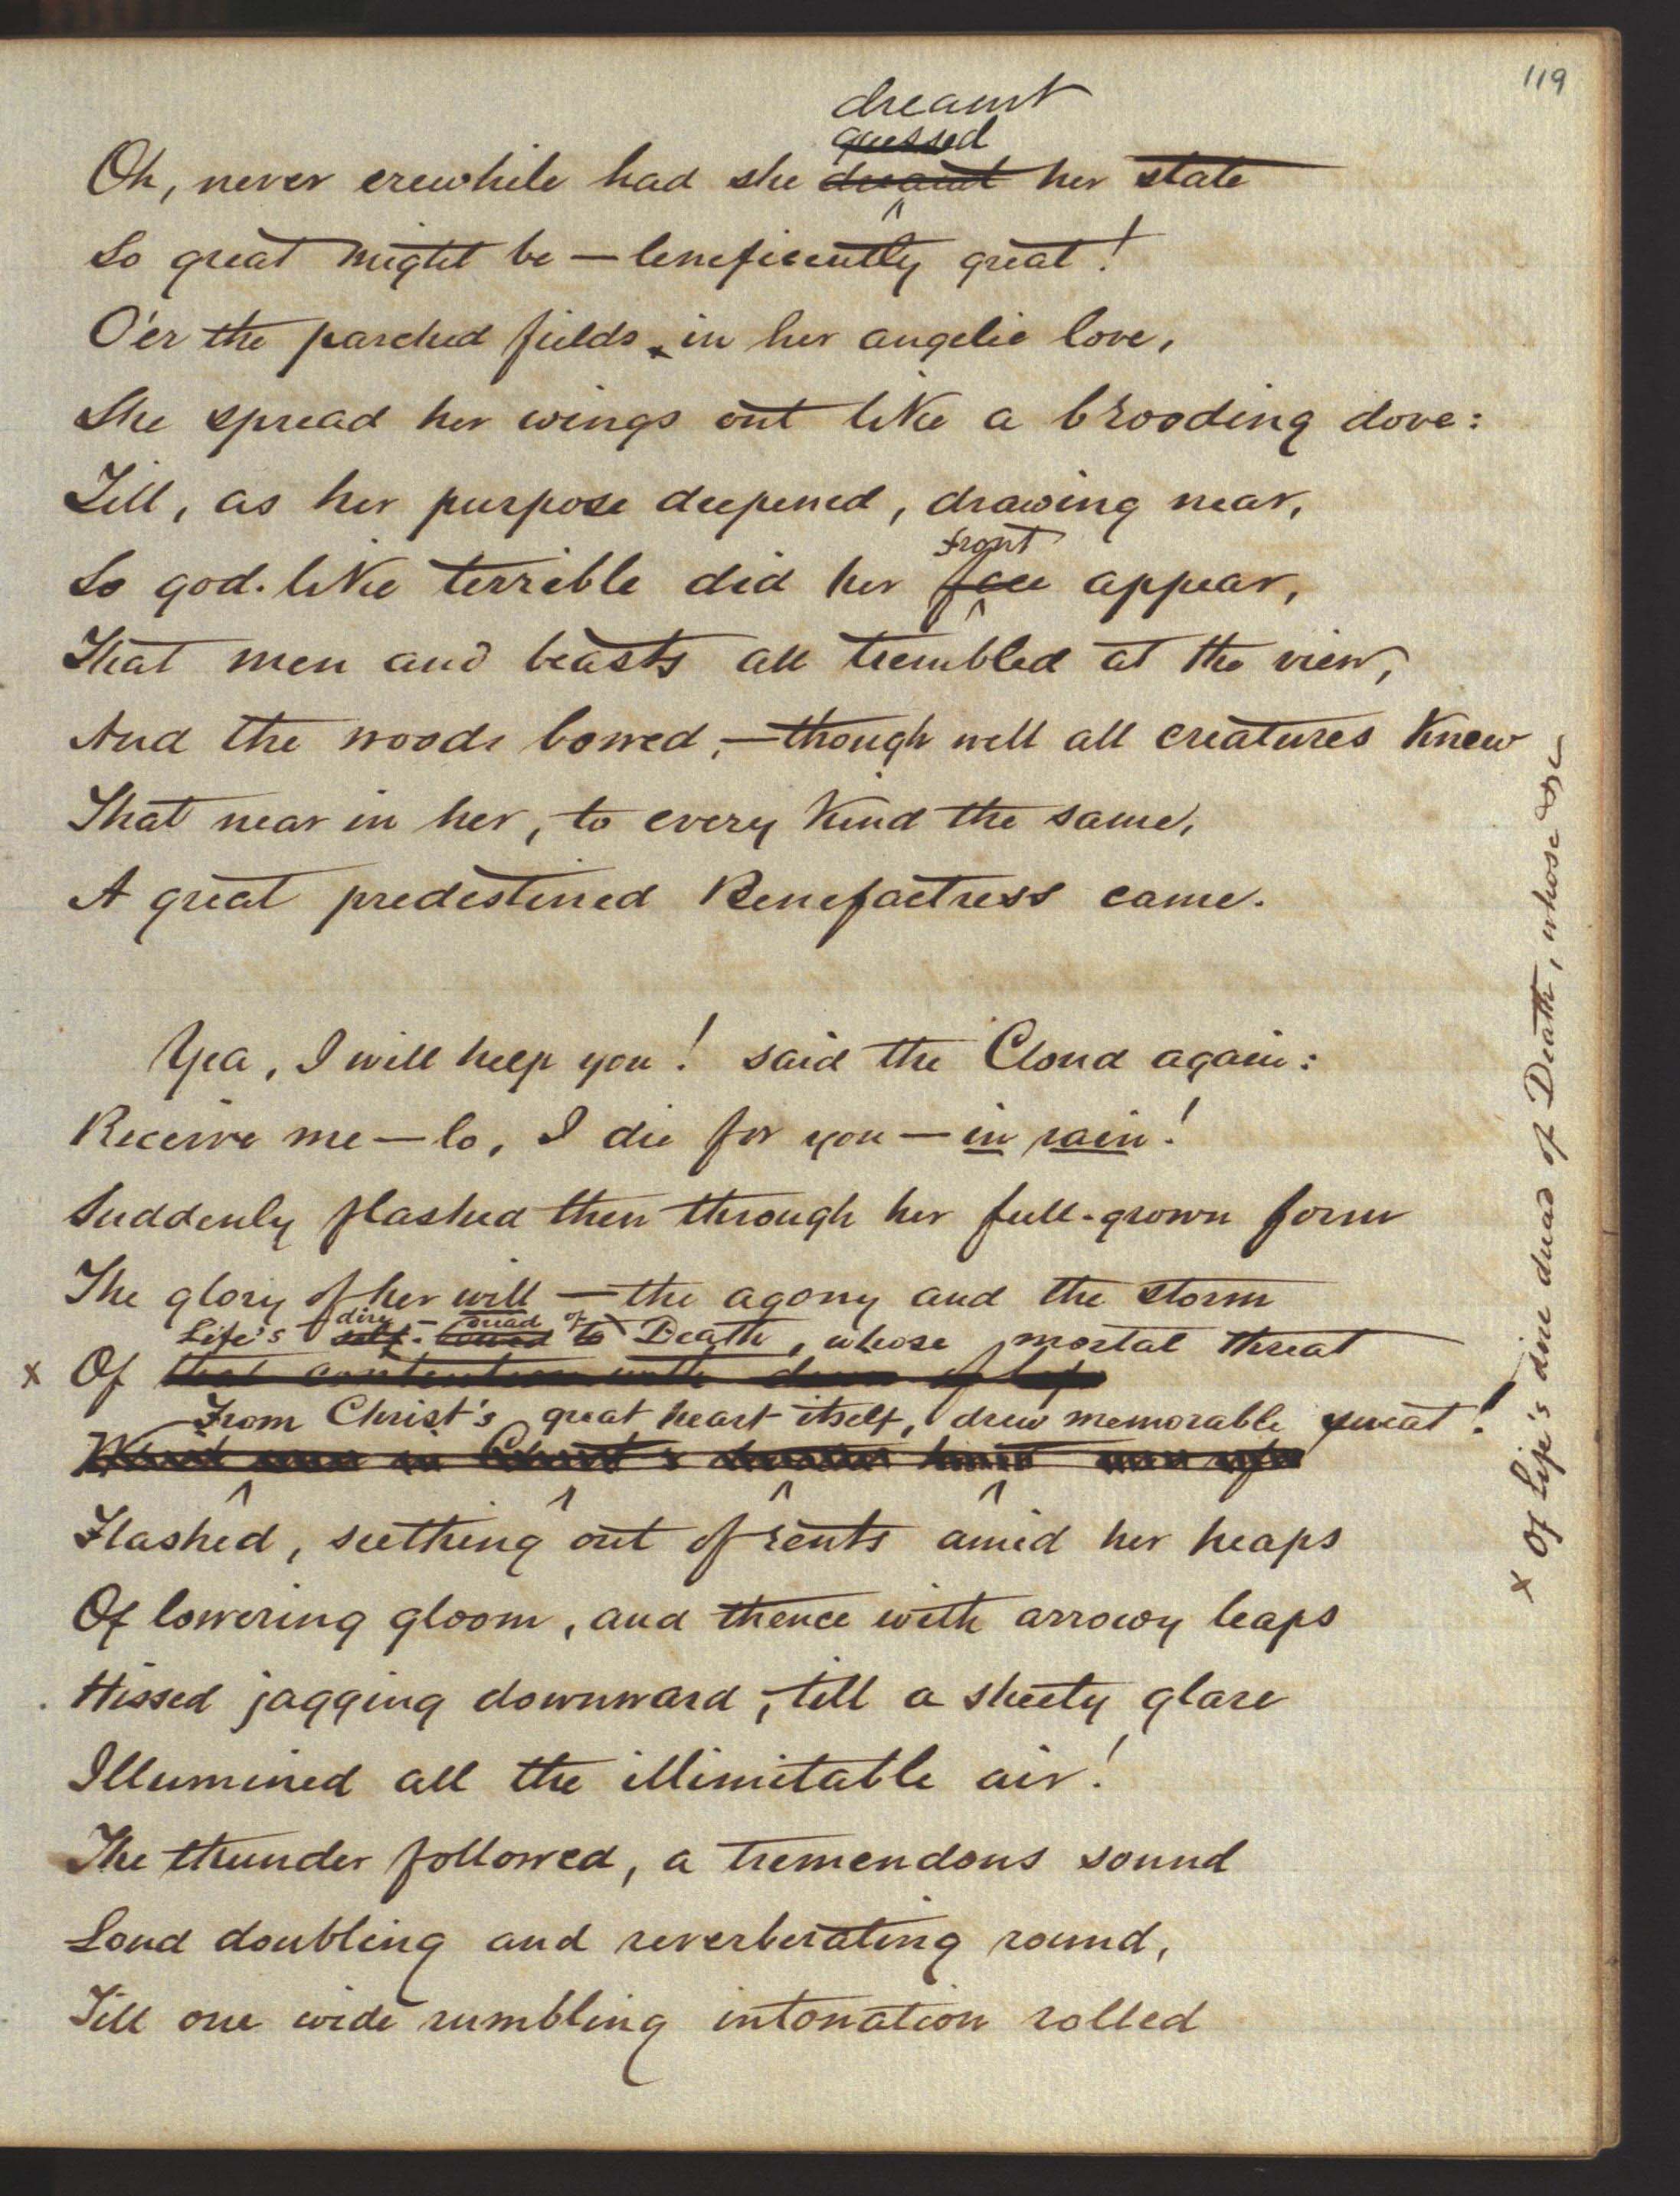 119
dreamt
guessed
Oh, never erewhile had she dreamt her state
So great might be — beneficently great!
O'er the parched fields, in her angelic love,
She spread her wings out like a brooding dove:
Till, as her purpose deepened, drawing near,
front
So god-like terrible did her face appear,
That men and beasts all trembled at the view,
And the woods bowed, — though well all creatures knew
That near in her, to every kind the same,
A great predestined Benefactress came.
Yea, I will help you! said the Cloud again:
Receive me — lo, I die for you — in rain!
Suddenly flashed then through her full-grown form
The glory of her will — the agony and the storm
dire dread of
Life's self- to Death, whose mortal threat
x Of that contention with
From Christ's great heart itself, drew memorable sweat!
in Christ's
Flashed, seething out of rents amid her heaps
Of lowering gloom, and thence with arrowy leaps
Hissed jagging downward, till a sheety glare
Illumined all the illimitable air!
The thunder followed, a tremendous sound
Loud doubling and reverberating round,
Till one wide rumbling intonation rolled
x Of life's dire dread of Death, whose &c